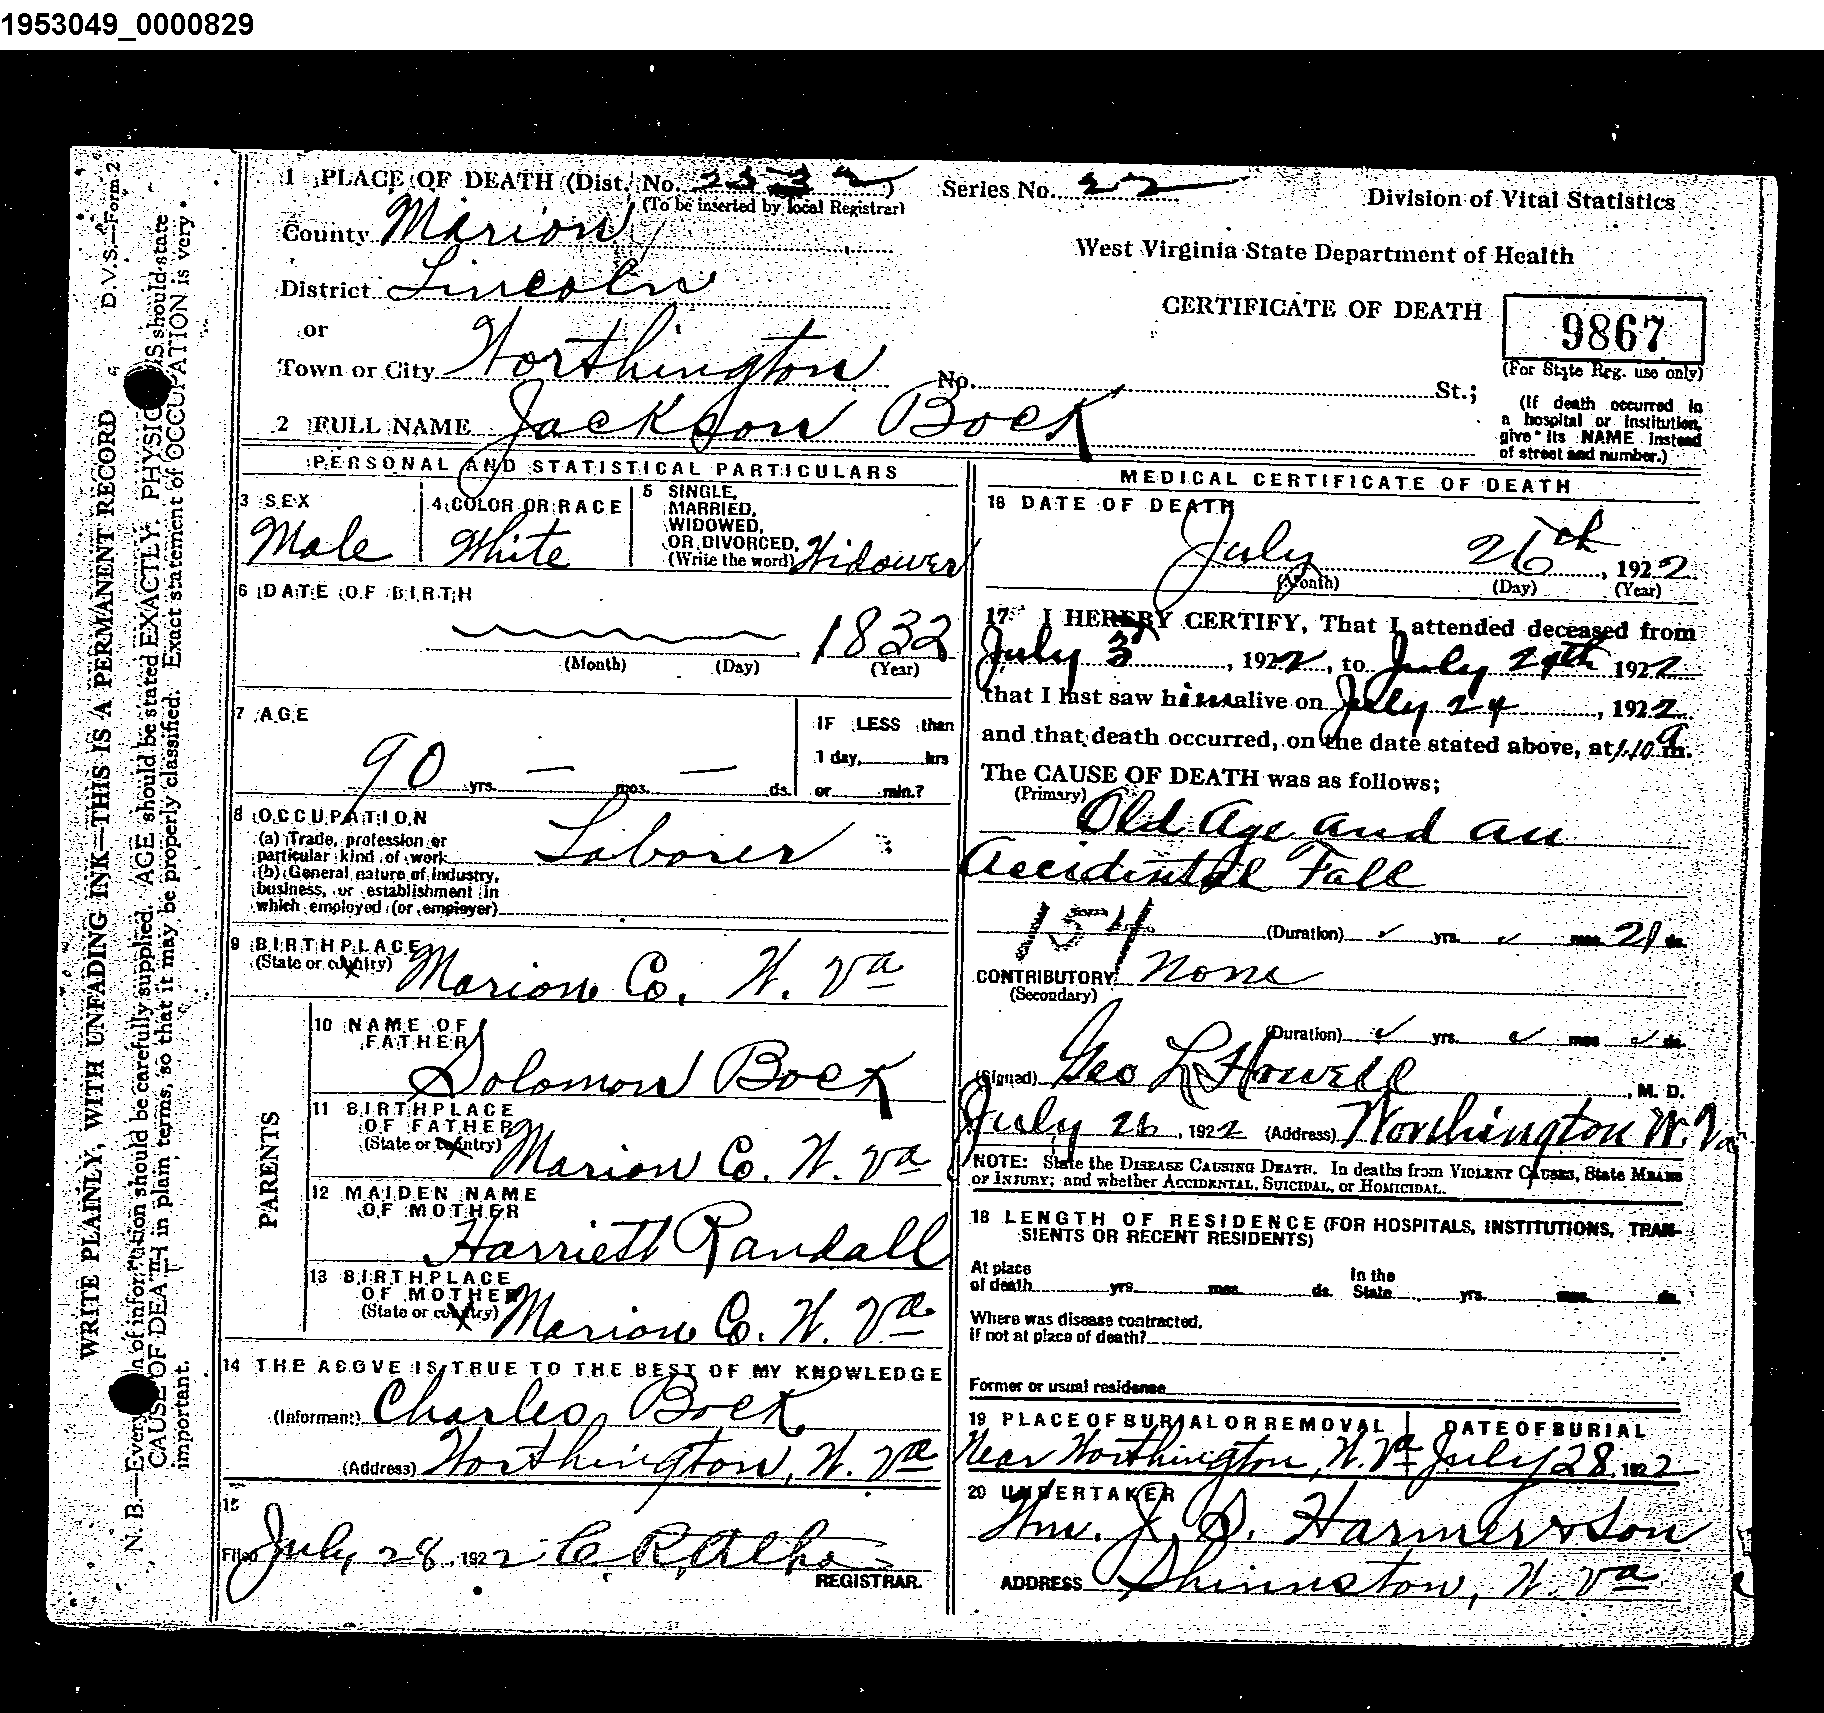 1953049_0000829
1 PLACE OF DEATH (Dist. No. 2532) Series No. 22 Division of Vital Statistics
(To be inserted by local Registrar)
County Marion
West Virginia State Department of Health
District Lincoln
CERTIFICATE OF DEATH 9867
or
(For State Reg. use only)
Town or City Worthington No. St.;
(If death occurred in
a hospital or institution,
give its NAME instead
of street and number.)
2 FULL NAME Jackson Bock
PERSONAL AND STATISTICAL PARTICULARS
3 SEX
Male
4 COLOR OR RACE
White
5 SINGLE,
MARRIED,
WIDOWED,
OR DIVORCED,
(Write the word) Widower
6 DATE OF BIRTH
1832
(Month) (Day) (Year)
7 AGE
90 yrs. — mos. — ds.
IF LESS than
1 day, hrs
or min.?
8 OCCUPATION
(a) Trade, profession or
particular kind of work Laborer
(b) General nature of industry,
business, or establishment in
which employed (or employer)
9 BIRTHPLACE
(State or country) Marion Co. W. Va
PARENTS
10 NAME OF
FATHER
Solomon Bock
11 BIRTHPLACE
OF FATHER
(State or country) Marion Co. W. Va
12 MAIDEN NAME
OF MOTHER
Harriett Randall
13 BIRTHPLACE
OF MOTHER
(State or country) Marion Co. W. Va
14 THE ABOVE IS TRUE TO THE BEST OF MY KNOWLEDGE
(Informant) Charles Bock
(Address) Worthington, W. Va
15
Filed July 28, 1922 C. R.
REGISTRAR.
MEDICAL CERTIFICATE OF DEATH
16 DATE OF DEATH
July 26th, 1922
(Month) (Day) (Year)
17 I HEREBY CERTIFY, That I attended deceased from
July 3, 1922, to July 24th 1922
that I last saw him alive on July 24, 1922
and that death occurred, on the date stated above, at 1.10 a m.
The CAUSE OF DEATH was as follows;
(Primary) Old Age and an
Accidental Fall
154 (Duration) yrs. mos. 21 ds.
CONTRIBUTORY None
(Secondary)
(Duration) yrs. mos ds.
(Signed) Geo L Howell, M. D.
July 26, 1922 (Address) Worthington W. Va
NOTE: State the DISEASE CAUSING DEATH. In deaths from VIOLENT CAUSES, State MEANS
OF INJURY; and whether ACCIDENTAL, SUICIDAL, or HOMICIDAL.
18 LENGTH OF RESIDENCE (FOR HOSPITALS, INSTITUTIONS, TRAN-
SIENTS OR RECENT RESIDENTS)
At place In the
of death yrs. mos. ds. State yrs. mos. ds.
Where was disease contracted,
if not at place of death?
Former or usual residense
19 PLACE OF BURIAL OR REMOVAL DATE OF BURIAL
Near Worthington, W. Va July 28, 1922
20 UNDERTAKER
Wm. J. D. Harmer & Son
ADDRESS Shinnston, W. Va
D. V. S.—Form 2
WRITE PLAINLY, WITH UNFADING INK—THIS IS A PERMANENT RECORD
N. B.—Every item of information should be carefully supplied. AGE should be stated EXACTLY. PHYSICIANS should state
CAUSE OF DEATH in plain terms, so that it may be properly classified. Exact statement of OCCUPATION is very
important.